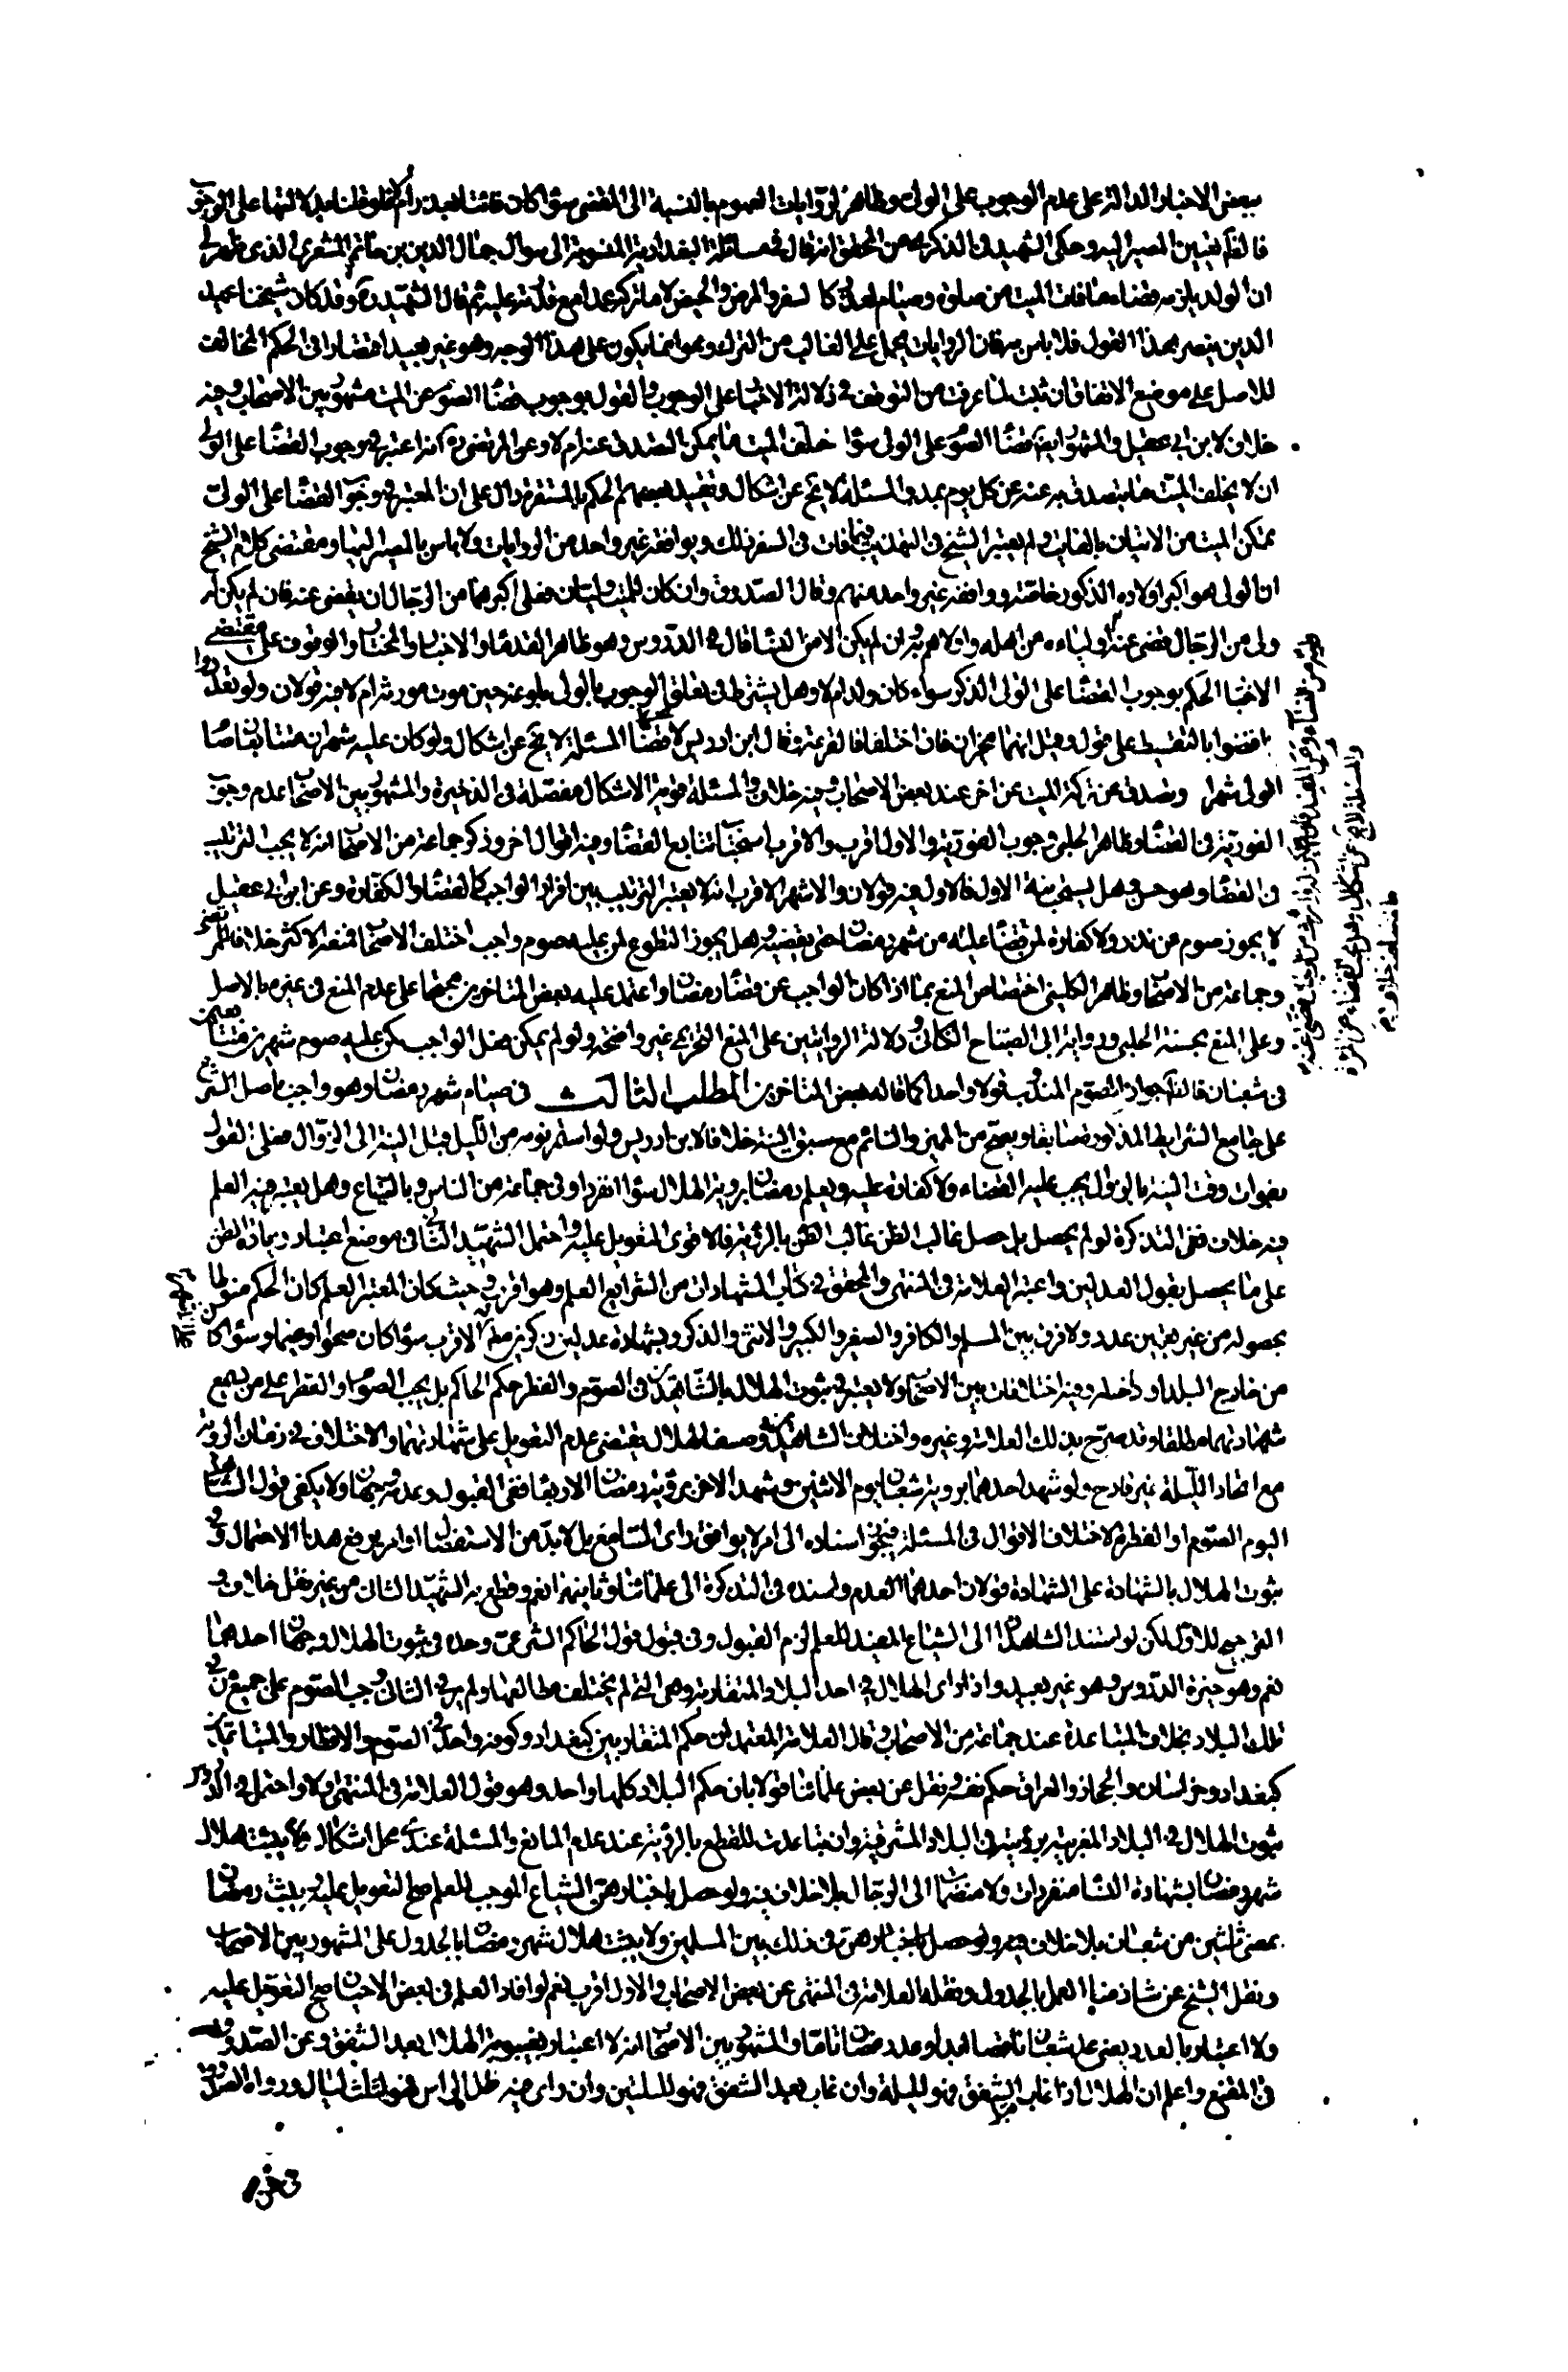 ببعض الاخبار الدالة على عدم الوجوب على الولي وظاهر الروايات العموم بالنسبة الى المقضي سواء كان فائتا لعذر ام لا ولو قلنا بدلالتها على الوجوب
فالمتعين المصير اليه وحكى الشهيد في الذكرى عن المحقق انه قال في مسائله البغدادية المنسوبة الى سؤال جمال الدين بن حاتم المشغري الذي ظهر لي
ان الولد يلزمه قضاء ما فات الميت من صلوة وصيام لعذر كالسفر والمرض والحيض لا ما تركه عمدا مع قدرته عليه ثم قال الشهيد وقد كان شيخنا عميد
الدين ينصر هذا القول فلا باس به فان الروايات يحمل على الغالب من الترك وهو انما يكون على هذا الوجه وهو غير بعيد اقتصارا في الحكم المخالف
للاصل على موضع الاتفاق ان ثبت لما عرفت من التوقف في دلالة الاخبار على الوجوب والقول بوجوب قضاء الصوم عن الميت مشهور بين الاصحاب وفيه
خلاف لابن ابي عقيل والمشهور ايضا قضاء الصوم على الولي سواء خلف الميت ما يمكن التصدق عنه ام لا وعن المرتضى انه اعتبر في وجوب القضاء على الولي
ان لا يخلف الميت ما يتصدق به عنه عن كل يوم بمد والمسئلة لا يخ عن اشكال وتقييد بعضهم الحكم بالمستقر دال على ان المعتبر في وجوب القضاء على الولي
تمكن الميت من الاتيان بالفايت ولم يعتبر الشيخ في التهذيب فيما فات في السفر ذلك ويوافقه غير واحد من الروايات ولا باس بالمصير اليها ومقتضى كلام الشيخ
ان الولي هو اكبر اولاده الذكور خاصة ووافقه غير واحد منهم وقال الصدوق وان كان للميت وليان فعلى اكبرهما من الرجال ان يقضي عنه فان لم يكن له
ولي من الرجال قضى عنه اولياءه من اهله واولاهم به ان لم يكن الا من النساء قال في الدروس وهو ظاهر القدماء والاخبار والمختار والوقوف على مقتضى
الاخبار الحكم بوجوب القضاء على الولي الذكر سواء كان ولدا ام لا وهل يشترط في تعلق الوجوب بالولي بلوغه حين موت مورثه ام لا فيه قولان ولو تعددوا
قضوا بالتقسيط على قول وقيل انهما مخيران فان اختلفا فالقرعة وقال ابن ادريس لا قضاء المسئلة لا يخ عن اشكال ولو كان عليه شهران متتابعان صام
الولي شهرا وتصدق عن تركة الميت عن اخر عند بعض الاصحاب وفيه خلاف والمسئلة قوية الاشكال مفصلة في الذخيرة والمشهور بين الاصحاب عدم وجوب
الفورية في القضاء وظاهر الحلبي وجوب الفورية والاول اقرب والاقرب استحباب تتابع القضاء وفيه اقوال اخر وذكر جماعة من الاصحاب انه لا يجب الترتيب
في القضاء وهو حسن وهل يستحب نية الاول فالاول فيه قولان والاشهر الاقرب انه لا يعتبر الترتيب بين افراد الواجب كالقضاء والكفارة وعن ابن ابي عقيل
لا يجوز صوم عن نذر ولا كفارة لمن عليه قضاء من شهر رمضان حتى يقضيه وهل يجوز التطوع لمن عليه صوم واجب اختلف الاصحاب فمنعه الاكثر خلافا للمرتضى
وجماعة من الاصحاب وظاهر الكليني اختصاص المنع بما اذا كان الواجب عن قضاء رمضان واعتمد عليه بعض المتاخرين محتجا على عدم المنع في غيره بالاصل
وعلى المنع بحسنة الحلبي ورواية ابي الصباح الكناني ودلالة الروايتين على المنع التحريم غير واضحة ولو لم يمكن فعل الواجب كمن عليه صوم شهرين متتابعين
في شعبان فالظ جواز الصوم المندوب قولا واحدا كما قاله بعض المتاخرين المطلب الثالث في صيام شهر رمضان وهو واجب باصل الشرع
على جامع الشرايط المذكورة سابقا ويصح من المميز والنائم مع سبق النية خلافا لابن ادريس ولو استمر نومه من الليل قبل النية الى الزوال فعلى القول
بفوات وقت النية بالزوال يجب عليه القضاء ولا كفارة عليه ويعلم رمضان برؤية الهلال سواء انفرد او في جماعة من الناس وبالشياع وهل يعتبر فيه العلم
فيه خلاف ففي التذكرة لو لم يحصل بل حصل غالب الظن غالب الظن بالرؤية فالاقوى التعويل عليه واحتمل الشهيد الثاني في موضع اعتبار زيادة الظن
على ما يحصل بقول العدلين واعتبر العلامة في المنتهى والمحقق في كتاب الشهادات من الشرايع العلم وهو اقرب وحيث كان المعتبر العلم كان الحكم منوطا
بحصوله من غير تعيين عدد ولا فرق بين المسلم والكافر والصغير والكبير والانثى والذكر وبشهادة عدلين ذكرين على الاقرب سواء كان صحوا او غيما وسواء كانا
من خارج البلد او داخله وفيه اختلافات بين الاصحاب ولا يعتبر في ثبوت الهلال بالشاهدين في الصوم والفطر حكم الحاكم بل يجب الصوم او الفطر على من سمع
شهادتهما مطلقا وقد صرح بذلك العلامة وغيره واختلاف الشاهدين في وصف الهلال يقتضي عدم التعويل على شهادتهما والاختلاف في زمان الرؤية
مع اتحاد الليلة غير قادح ولو شهد احدهما برؤية شعبان يوم الاثنين وشهد الاخر برؤية رمضان الاربعا ففي القبول وعدمه وجهان ولا يكفي قول الشاهد
اليوم الصوم او الفطر لاختلاف الاقوال في المسئلة فيجوز اسناده الى امر لا يوافق راى السامع بل لا بد من الاستفصال او امر يرفع هذا الاحتمال وفي
ثبوت الهلال بالشهادة على الشهادة قولان احدهما العدم واسنده في التذكرة الى علمائنا وثانيهما نعم وقطع به الشهيد الثاني من غير نقل خلاف و
الترجيح للاول لكن لو استند الشاهدان الى الشياع المفيد للعلم لزم القبول وفي قبول قول الحاكم الشرعي وحده في ثبوت الهلال وجهان احدهما
نعم وهو خيرة الدروس وهو غير بعيد واذا راى الهلال في احد البلاد المتقاربة وهي التي لم يختلف مطالعها ولم ير في الثاني وجب الصوم على جميع من في
تلك البلاد بخلاف المتباعدة عند جماعة من الاصحاب وقال العلامة المعتمد ان حكم المتقاربين كبغداد وكوفة واحد في الصوم والافطار والمتباعدين
كبغداد وخراسان والحجاز والعراق حكم نفسه ونقل عن بعض علمائنا قولا بان حكم البلاد كلها واحد وهو قول العلامة في المنتهى اولا واحتمل في الدروس
ثبوت الهلال في البلاد المغربية برؤيته في البلاد المشرقية وان تباعدت للقطع بالرؤية عند عدم المانع والمسئلة عندي محل اشكال ولا يثبت هلال
شهر رمضان بشهادة النساء منفردات ولا منضمات الى الرجال بلا خلاف فيه ولو حصل باخبارهن الشياع الموجب للعلم صح التعويل عليه ويثبت رمضان
بمضي ثلثين من شعبان بلا خلاف فيه بين المسلمين ولا يثبت هلال شهر رمضان بالجدول على المشهور بين الاصحاب
ونقل الشيخ عن شاذ منا العمل بالجدول ونقله العلامة في المنتهى عن بعض الاصحاب والاول اقرب نعم لو افاد العلم في بعض الاحيان صح التعويل عليه
ولا اعتبار بالعدد يعني عد شعبان ناقصا ابدا وعد رمضان تاما والمشهور بين الاصحاب انه لا اعتبار بغيبوبة الهلال بعد الشفق وعن الصدوق
في المقنع واعلم ان الهلال اذا غاب قبل الشفق فهو لليلة وان غاب بعد الشفق فهو لليلتين وان راى فيه ظل الراس فهو لثلث ليال ورواه الصدوق